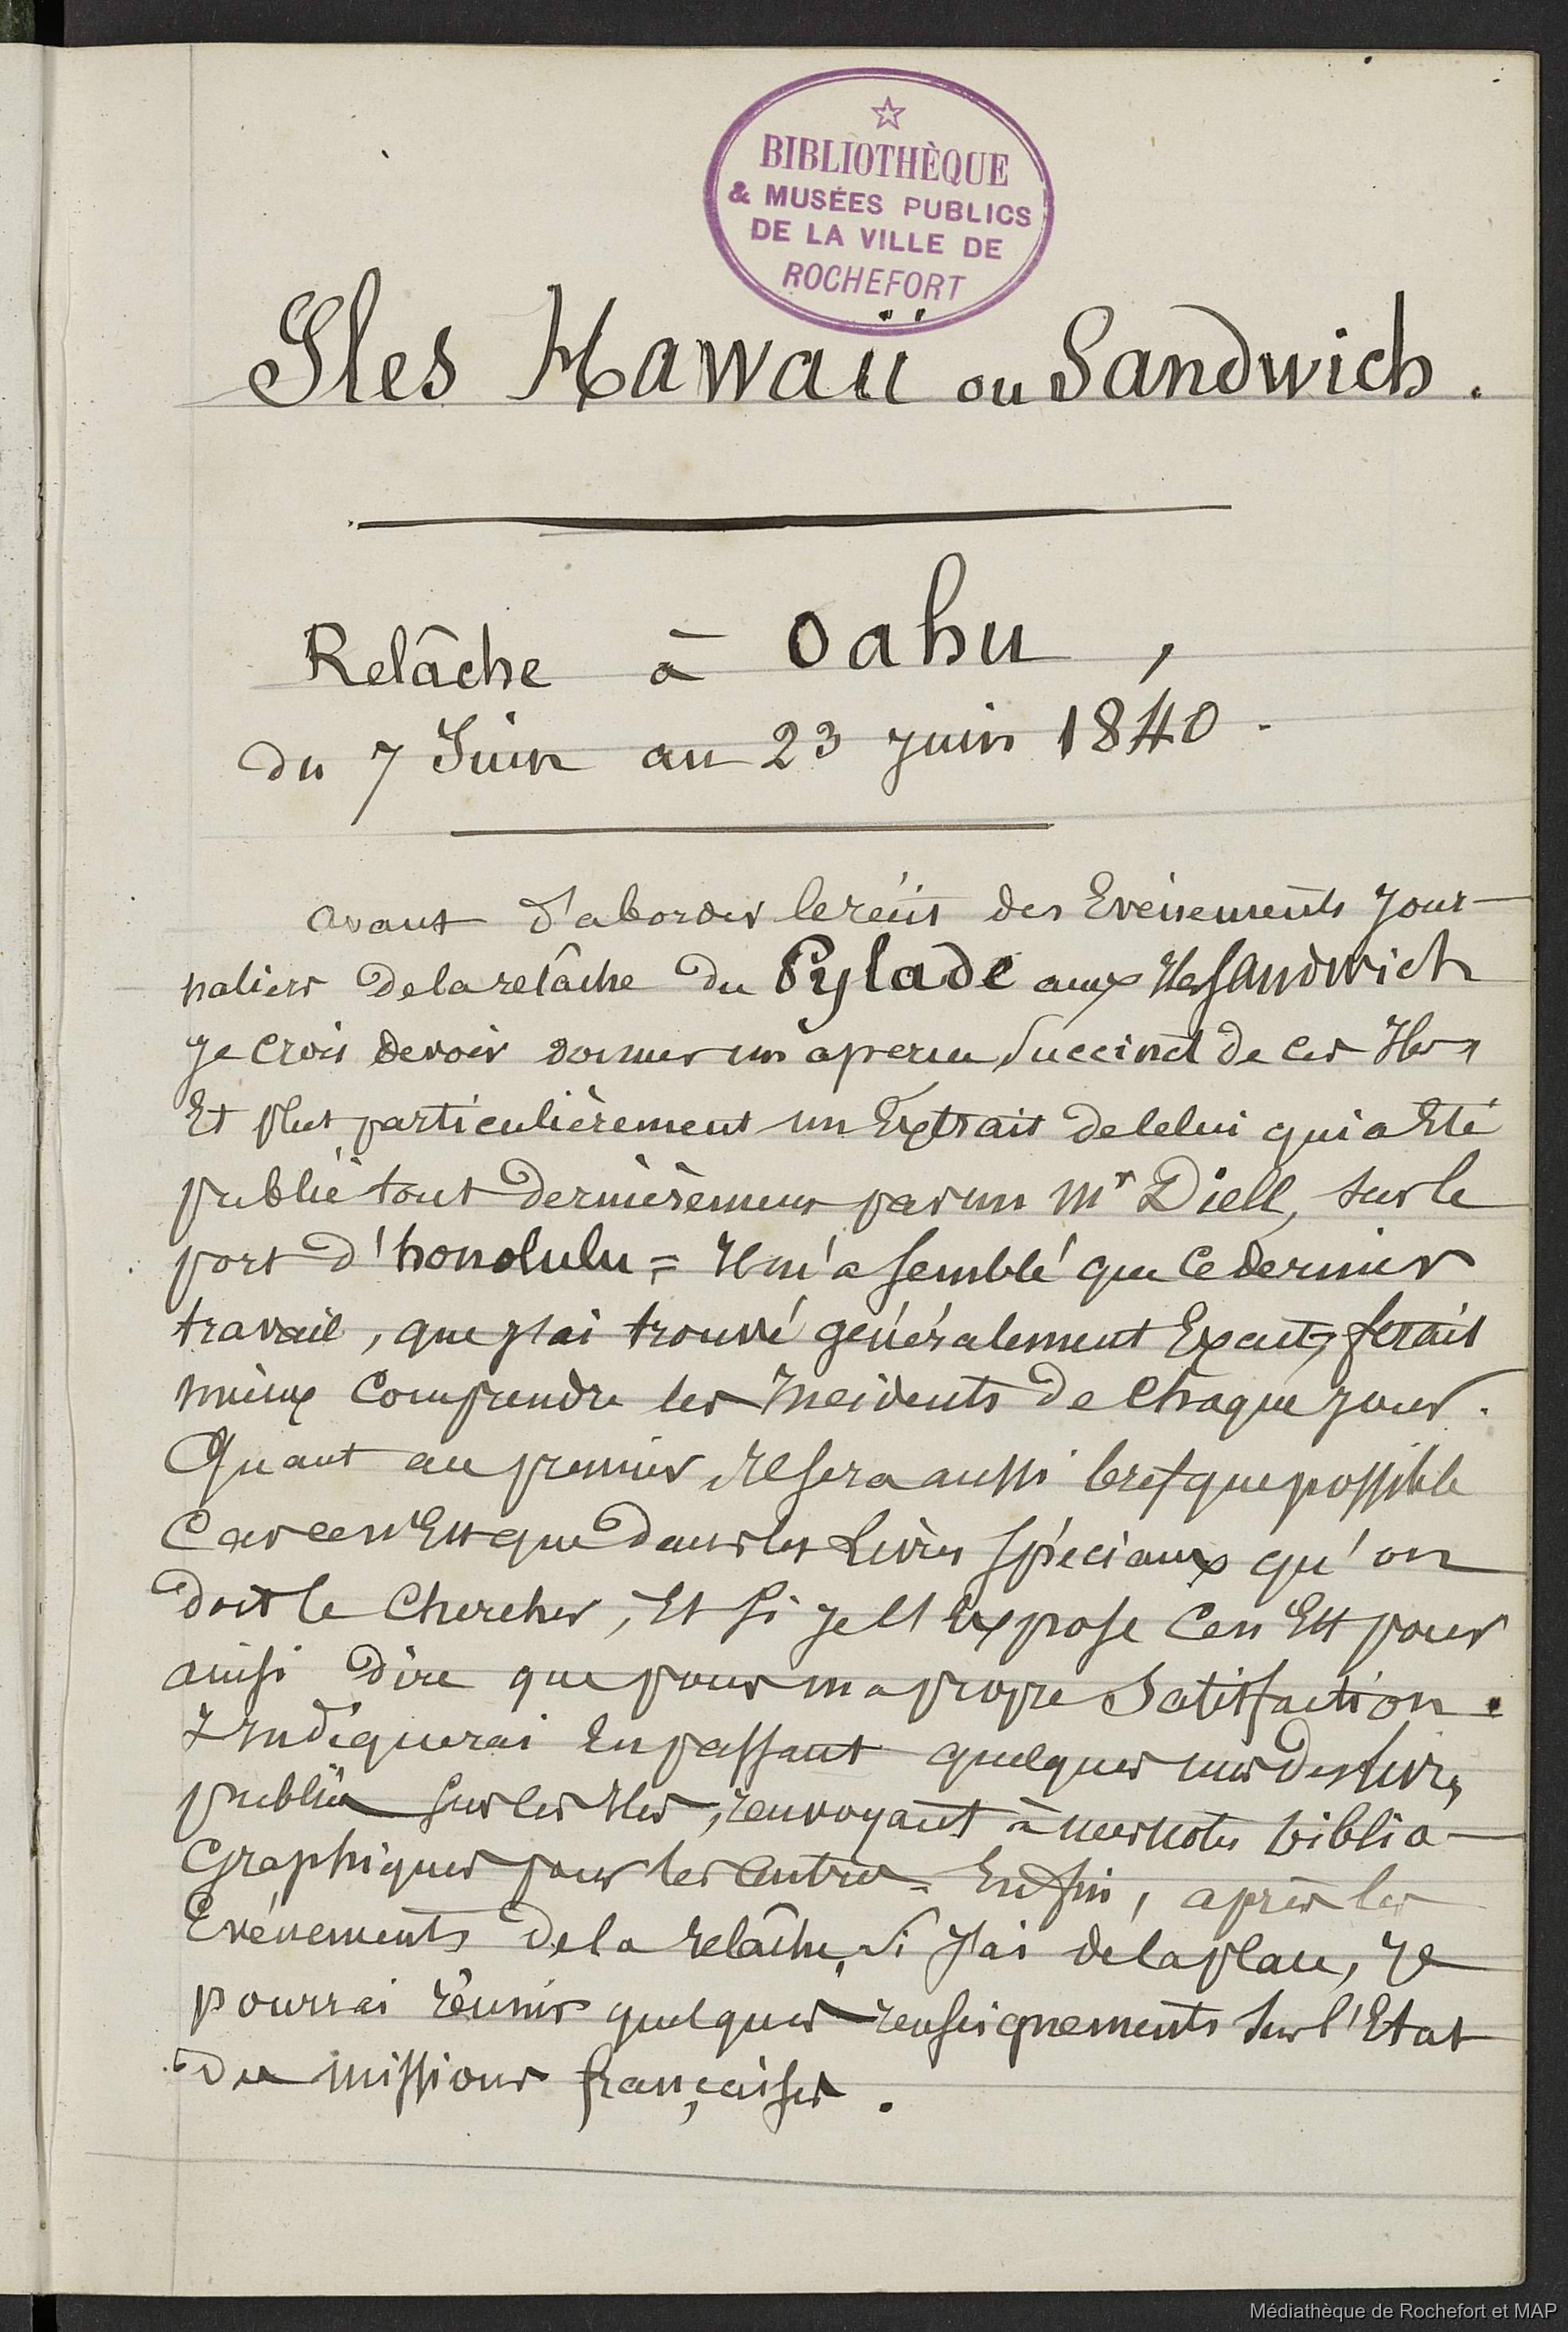 ☆
BIBLIOTHÈQUE
& MUSÉES PUBLICS
DE LA VILLE DE
ROCHEFORT
Iles Hawaii ou Sandwich.
Relâche à Oahu,
du 7 Juin au 23 juin 1840.
avant d'aborder le récit des Evénements jour-
naliers de la relâche du Pylade aux Iles Sandwich
je crois devoir donner un aperçu succinct de ces Iles,
Et plus particulièrement un Extrait de celui qui a Eté
publié tout dernièrement par un Mr Diell, sur le
port d'honolulu = Il m'a semblé que ce dernier
travail, que j'ai trouvé généralement Exact, ferait
mieux comprendre les Incidents de chaque jour.
Quant au premier, Il sera aussi bref que possible
Car ce n'Est que dans les Livres spéciaux qu'on
doit le Chercher, Et si je l'Expose Ce n'Est pour
ainsi dire que pour ma propre Satisfaction.
J'indiquerai En passant quelques uns des livres
publiés sur les Iles, renvoyant à mes notes biblio-
Graphiques pour les autres. Enfin, après les
Evénements de la relâche, si j'ai de la place, je
pourrai réunir quelques renseignements sur l'Etat
des missions françaises.
Médiathèque de Rochefort et MAP